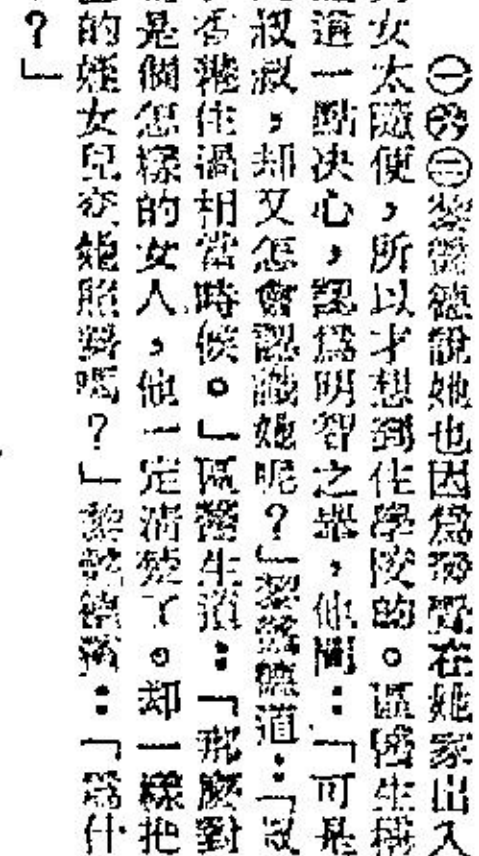 ㊀㊅㊁黎懿德說她也因為 在她家出入
女太隨便，所以才想到住學校的。區醫生
道一點決心，認為明智之舉，他問：「可是
叔叔，却又怎會認識她呢？」黎懿德道：「叔
香港住過相當時候。」區醫生道：「那麼對
是個怎樣的女人，他一定清楚了。却一樣把
的姪女兒交她照料嗎？」黎懿德 ：「為什
？」